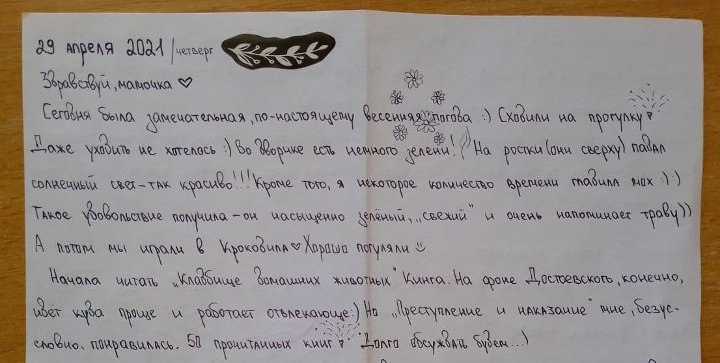 29 апреля 2021/четверг
Здравствуй, мамочка ♡
Сегодня была замечательная, по-настоящему весенняя погода :) Сходили на прогулку.
Даже уходить не хотелось :) Во дворике есть немного зелени! На ростки (они сверху) падал
солнечный свет – так красиво!!! Кроме того, я некоторое количество времени гладила мох :) :)
Такое удовольствие получила – он насыщенно зелёный, „свежий" и очень напоминает траву))
А потом мы играли в Крокодила ♡ Хорошо погуляли ☺
Начала читать „Кладбище домашних животных" Кинга. На фоне Достоевского, конечно,
идёт куда проще и работает отвлекающе :) Но „Преступление и наказание" мне, безус-
ловно, понравилась. 50 прочитанных книг! Долго обсуждать будем...)